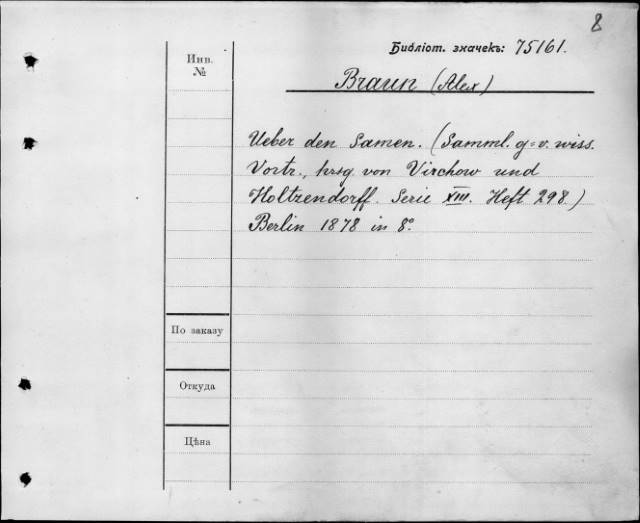 8
Библіот. значекъ: 75161.
Инв.
№
Braun (Alex)
Ueber den Samen. (Samml. g=v. wiss.
Vortr., hrsg von Virchow und
Holtzendorff. Serie XIII. Heft 298.)
Berlin 1878 in 8°.
По заказу
Откуда
Цѣна